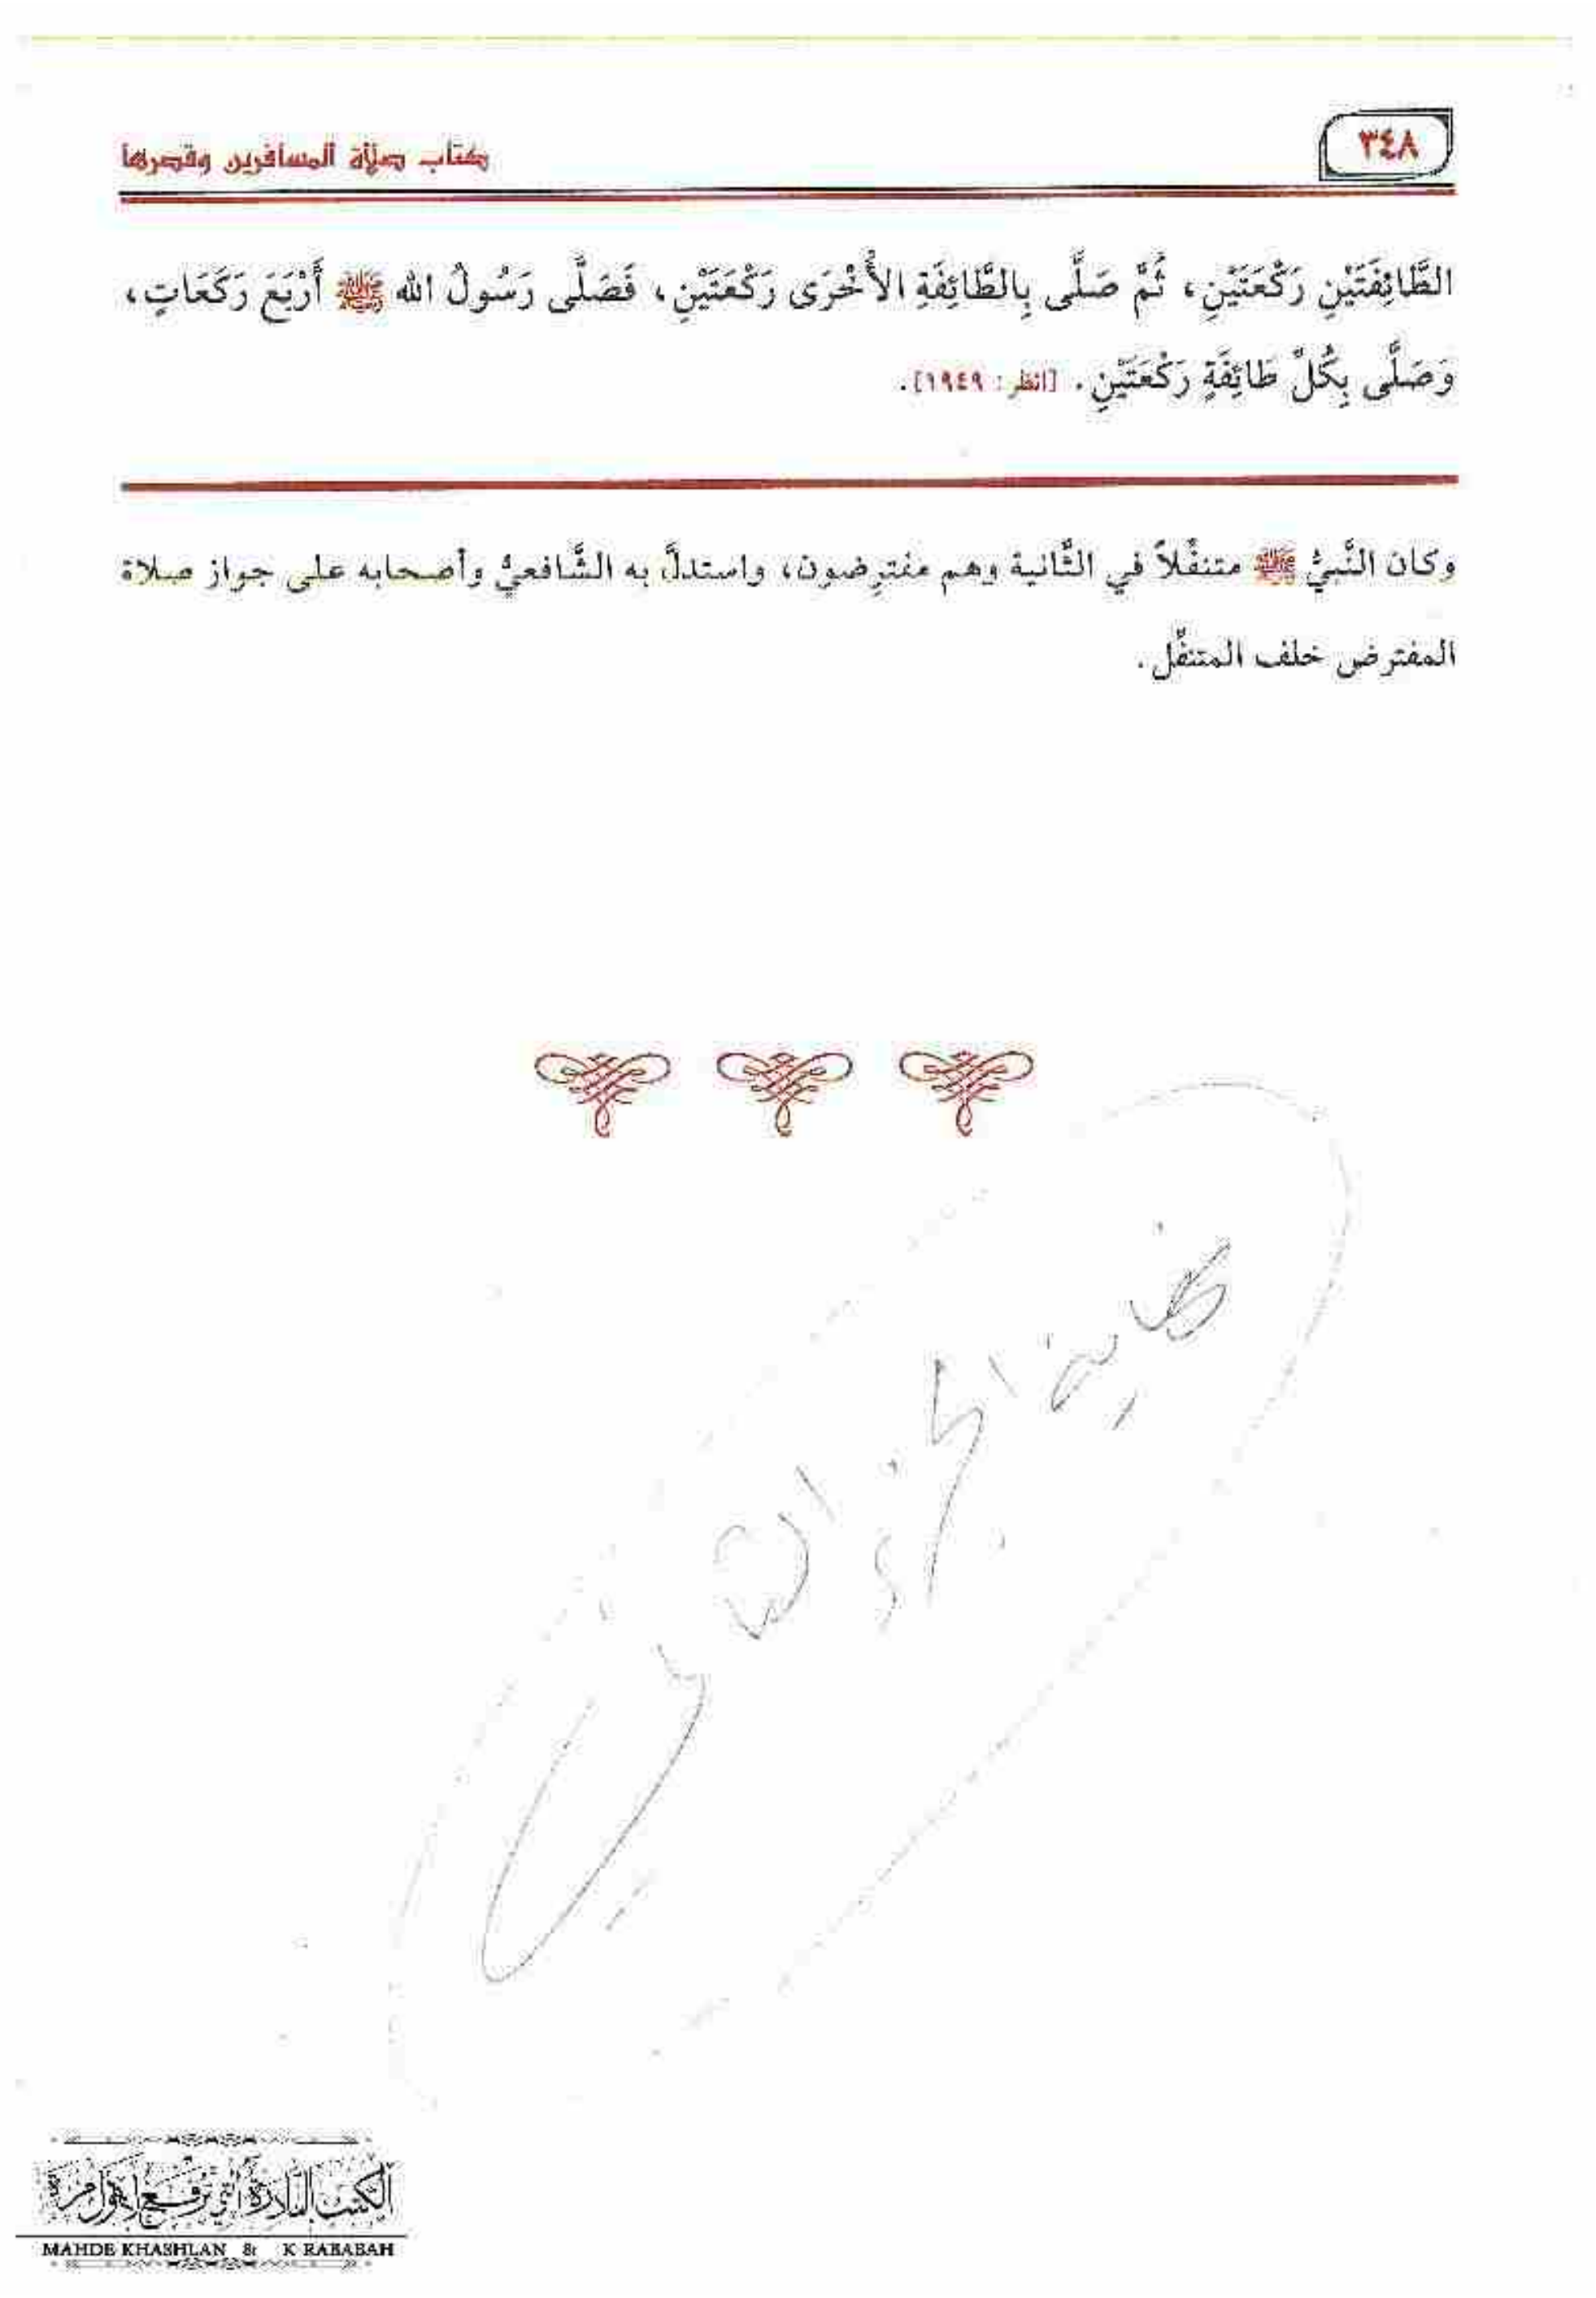 ٣٤٨
كتاب صلاة المسافرين وقصرها
الطَّائِفَتَيْنِ رَكْعَتَيْنِ، ثُمَّ صَلَّى بِالطَّائِفَةِ الأُخْرَى رَكْعَتَيْنِ، فَصَلَّى رَسُولُ الله ﷺ أَرْبَعَ رَكَعَاتٍ،
وَصَلَّى بِكُلِّ طَائِفَةٍ رَكْعَتَيْنِ. [انظر: ١٩٤٩].
وكان النَّبيُّ ﷺ متنفِّلاً في الثَّانية وهم مفترِضون، واستدلَّ به الشَّافعيُّ وأصحابه على جواز صلاة
المفترض خلف المتنفِّل.
الكتب النادرة التي ترفع لأول مرة
MAHDE KHASHLAN & K RABABAH